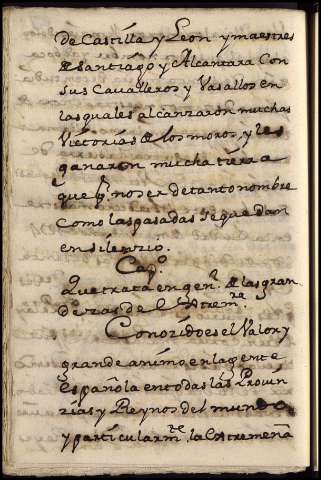 de Castilla y Leon y maestres
de Santiago y Alcantara con
sus Cavalleros y Vasallos en
las quales alcanzaron muchas
Victorias de los moros, y les
ganaron mucha tierra
que pr. no ser de tanto nombre
como las pasadas se quedan
en silencio.
Capo.
Que trata en genl. de las gran
dezas de Estrem.ra
Conozido es el Valor y
grande animo en la gente
Española en todas las Provin
zias y Reynos del mundo
y particularm.te la Estremeña